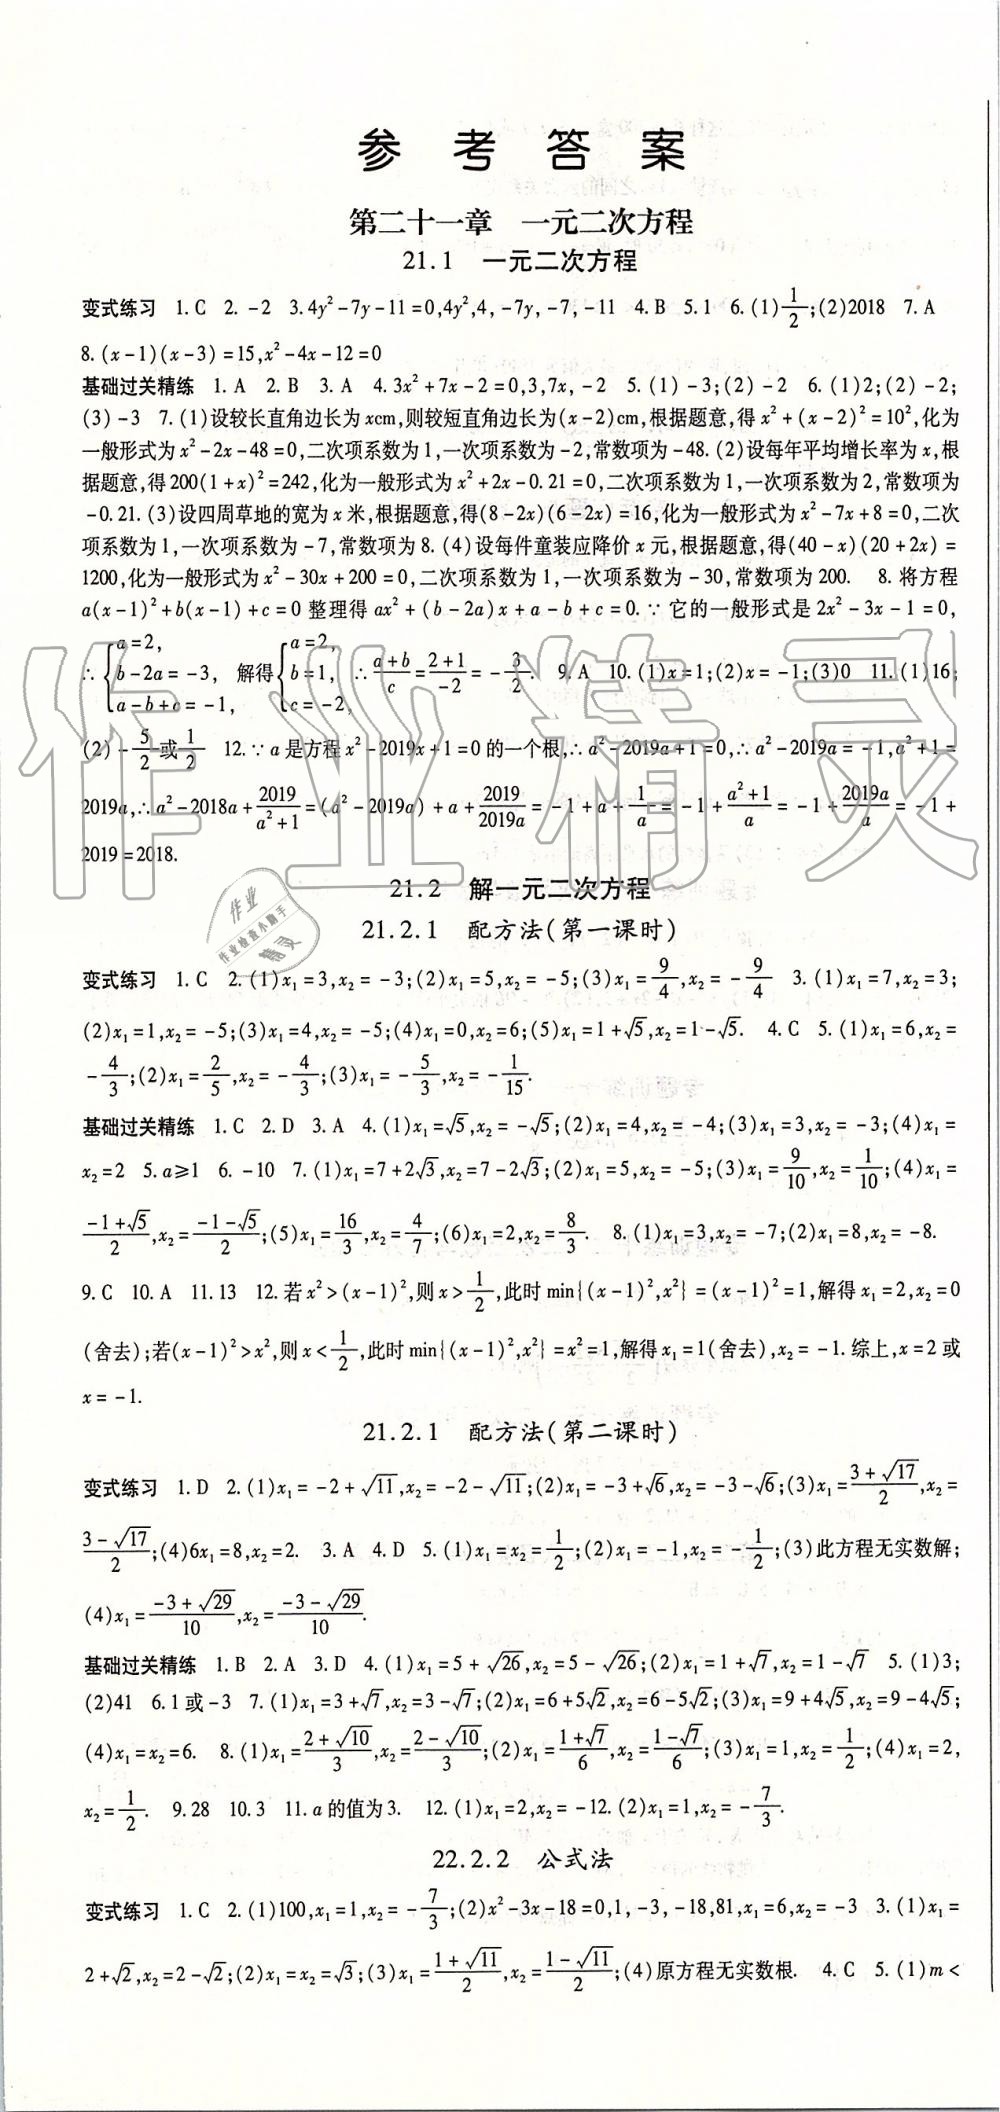 参考答案
第二十一章 一元二次方程
21.1 一元二次方程
变式练习 1.C 2. -2 3.4y²-7y-11=0,4y²,4,-7y,-7,-11 4.B 5.1 6.(1)1/2;(2)2018 7.A
8.(x-1)(x-3)=15,x²-4x-12=0
基础过关精练 1.A 2.B 3.A 4.3x²+7x-2=0,3,7x,-2 5.(1)-3;(2)-2 6.(1)2;(2)-2;
(3)-3 7.(1)设较长直角边长为xcm,则较短直角边长为(x-2)cm,根据题意,得x²+(x-2)²=10²,化为
一般形式为x²-2x-48=0,二次项系数为1,一次项系数为-2,常数项为-48.(2)设每年平均增长率为x,根
据题意,得200(1+x)²=242,化为一般形式为x²+2x-0.21=0,二次项系数为1,一次项系数为2,常数项为
-0.21.(3)设四周草地的宽为x米,根据题意,得(8-2x)(6-2x)=16,化为一般形式为x²-7x+8=0,二次
项系数为1,一次项系数为-7,常数项为8.(4)设每件童装应降价x元,根据题意,得(40-x)(20+2x)=
1200,化为一般形式为x²-30x+200=0,二次项系数为1,一次项系数为-30,常数项为200. 8.将方程
a(x-1)²+b(x-1)+c=0整理得ax²+(b-2a)x+a-b+c=0.∵它的一般形式是2x²-3x-1=0,
∴{a=2, b-2a=-3, a-b+c=-1, 解得{a=2, b=1, c=-2, ∴(a+b)/c=(2+1)/-2=-3/2. 9.A 10.(1)x=1;(2)x=-1;(3)0 11.(1)16;
(2)-5/2或1/2 12.∵a是方程x²-2019x+1=0的一个根,∴a²-2019a+1=0,∴a²-2019a=-1,a²+1=
2019a,∴a²-2018a+2019/(a²+1)=(a²-2019a)+a+2019/2019a=-1+a+1/a=-1+(a²+1)/a=-1+2019a/a=-1+
2019=2018.
21.2 解一元二次方程
21.2.1 配方法(第一课时)
变式练习 1.C 2.(1)x₁=3,x₂=-3;(2)x₁=5,x₂=-5;(3)x₁=9/4,x₂=-9/4 3.(1)x₁=7,x₂=3;
(2)x₁=1,x₂=-5;(3)x₁=4,x₂=-5;(4)x₁=0,x₂=6;(5)x₁=1+√5,x₂=1-√5. 4.C 5.(1)x₁=6,x₂=
-4/3;(2)x₁=2/5,x₂=-4/3;(3)x₁=-5/3,x₂=-1/15.
基础过关精练 1.C 2.D 3.A 4.(1)x₁=√5,x₂=-√5;(2)x₁=4,x₂=-4;(3)x₁=3,x₂=-3;(4)x₁=
x₂=2 5.a≥1 6.-10 7.(1)x₁=7+2√3,x₂=7-2√3;(2)x₁=5,x₂=-5;(3)x₁=9/10,x₂=1/10;(4)x₁=
(-1+√5)/2,x₂=(-1-√5)/2;(5)x₁=16/3,x₂=4/7;(6)x₁=2,x₂=8/3. 8.(1)x₁=3,x₂=-7;(2)x₁=8,x₂=-8.
9.C 10.A 11.13 12.若x²>(x-1)²,则x>1/2,此时min{(x-1)²,x²}=(x-1)²=1,解得x₁=2,x₂=0
(舍去);若(x-1)²>x²,则x<1/2,此时min{(x-1)²,x²}=x²=1,解得x₁=1(舍去),x₂=-1.综上,x=2或
x=-1.
21.2.1 配方法(第二课时)
变式练习 1.D 2.(1)x₁=-2+√11,x₂=-2-√11;(2)x₁=-3+√6,x₂=-3-√6;(3)x₁=(3+√17)/2,x₂=
(3-√17)/2;(4)6x₁=8,x₂=2. 3.A 4.D 5.(1)x₁=x₂=1/2;(2)x₁=-1,x₂=-1/2;(3)此方程无实数解;
(4)x₁=(-3+√29)/10,x₂=(-3-√29)/10.
基础过关精练 1.B 2.A 3.D 4.(1)x₁=5+√26,x₂=5-√26;(2)x₁=1+√7,x₂=1-√7 5.(1)3;
(2)41 6.1或-3 7.(1)x₁=3+√7,x₂=3-√7;(2)x₁=6+5√2,x₂=6-5√2;(3)x₁=9+4√5,x₂=9-4√5;
(4)x₁=x₂=6. 8.(1)x₁=(2+√10)/3,x₂=(2-√10)/3;(2)x₁=(1+√7)/6,x₂=(1-√7)/6;(3)x₁=1,x₂=1/2;(4)x₁=2,
x₂=1/2. 9.28 10.3 11.a的值为3. 12.(1)x₁=2,x₂=-12.(2)x₁=1,x₂=-7/3.
22.2.2 公式法
变式练习 1.C 2.(1)100,x₁=1,x₂=-7/3;(2)x²-3x-18=0,1,-3,-18,81,x₁=6,x₂=-3 3.(1)x₁=
2+√2,x₂=2-√2;(2)x₁=x₂=√3;(3)x₁=(1+√11)/2,x₂=(1-√11)/2;(4)原方程无实数根. 4.C 5.(1)m<
作业精灵
作业
作业检查小助手
精灵